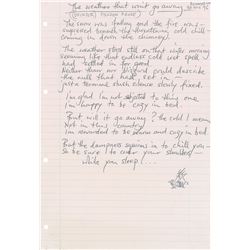 The weather that won't go away
The snow was falling and the fire was
suppressed beneath the threatening cold chill
coming in down the chimney.
The weather stood still on that winter morning
seeming like that endless cold wet spell
had settled in for good
Neither than nor blizzard could describe
the chill that had set in —
just a fearsome stark silence slowly fixed.
I'm glad I'm not subjected to this one
I'm happy to be cozy in bed.
But will it go away? the cold I mean
Not in this country
I'm rewarded to be warm and cozy in bed.
But the dampness squirms in to chill you —
So be sure to cover your shoulders —
while you sleep! ...